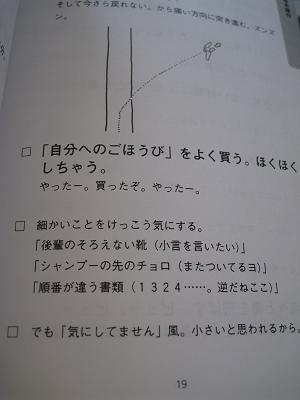 そして今さら戻れない。から痛い方向に突き進む。ズンズ
ン。
□ 「自分へのごほうび」をよく買う。ほくほく
しちゃう。
やったー。買ったぞ。やったー。
□ 細かいことをけっこう気にする。
「後輩のそろえない靴（小言を言いたい）」
「シャンプーの先のチョロ（またついてるヨ）」
「順番が違う書類（１３２４……。逆だねここ）」
□ でも「気にしてません」風。小さいと思われるから。
19